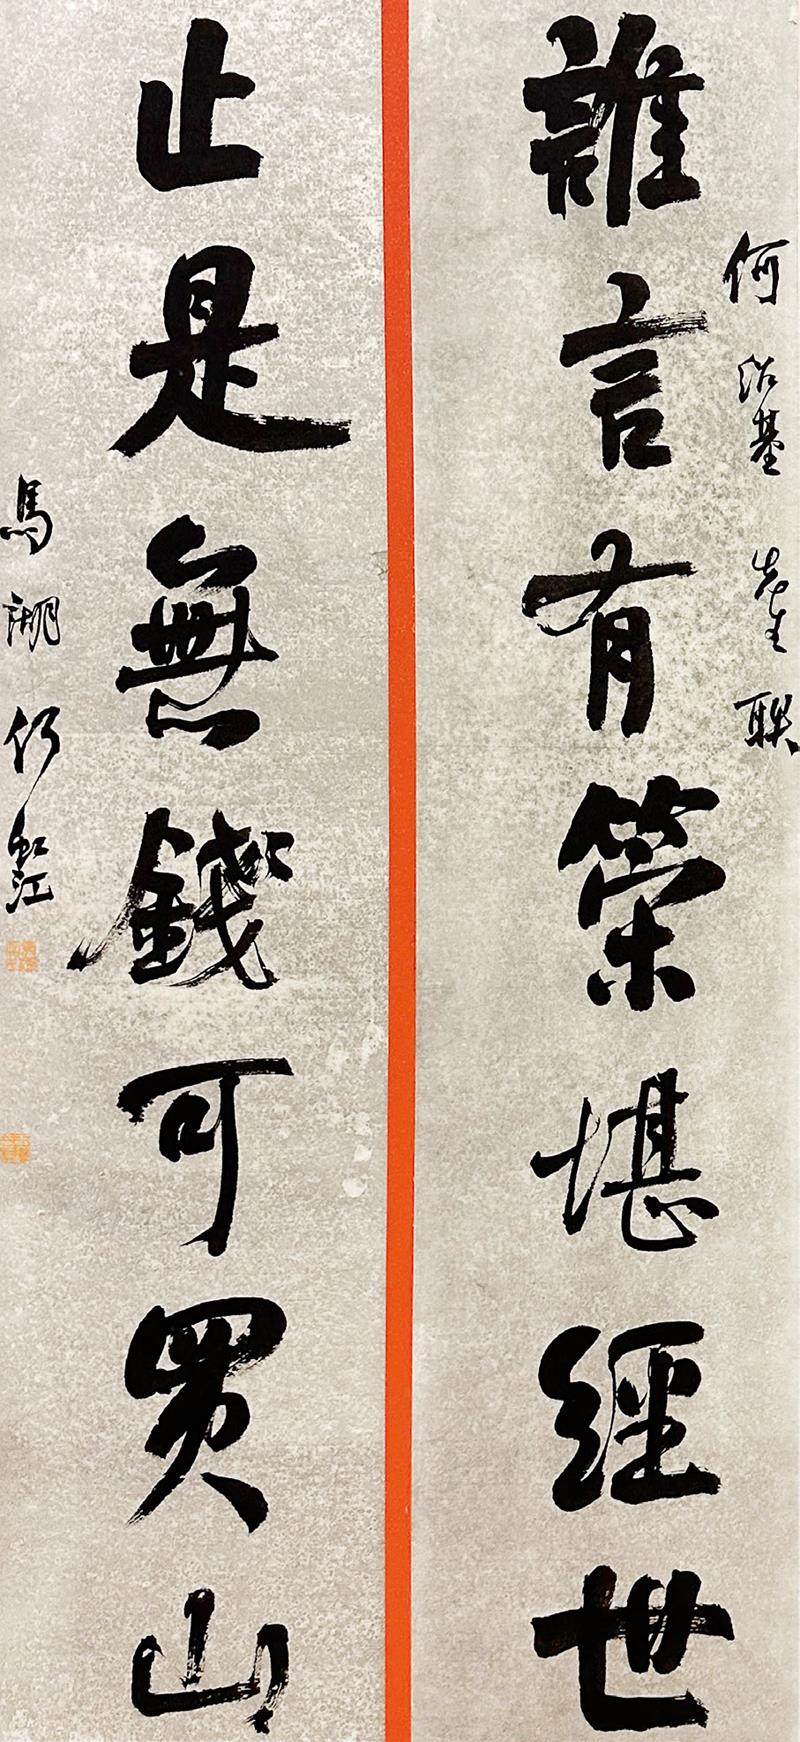 何紹基先生聯
誰言有策堪經世
止是無錢可買山
馬湖虹江